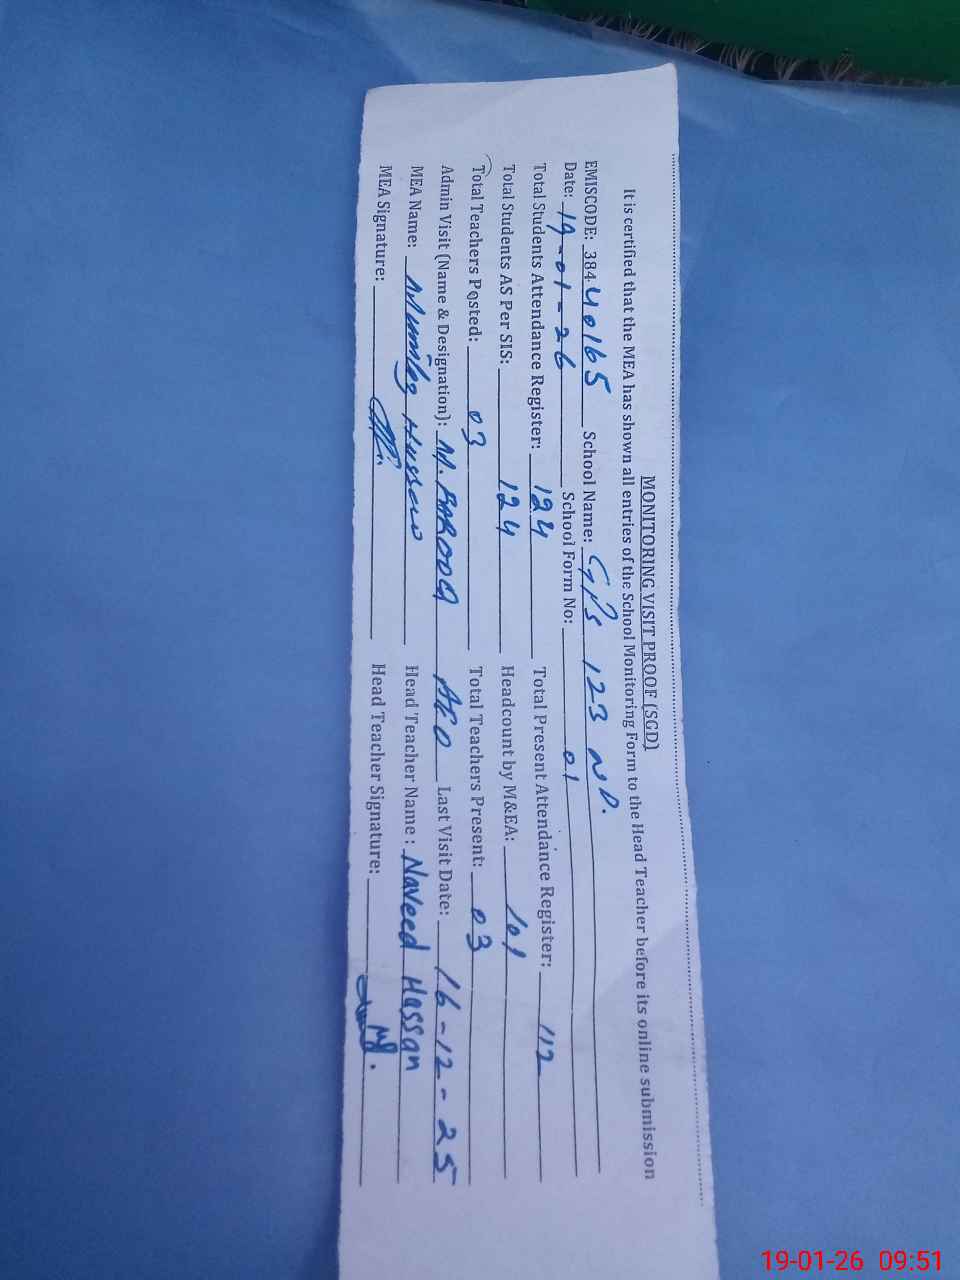 MONITORING VISIT PROOF (SGD)
It is certified that the MEA has shown all entries of the School Monitoring Form to the Head Teacher before its online submission
EMISCODE: 384-40165 School Name: GPS 123 NB.
Date: 19-01-26 School Form No: 01
Total Students Attendance Register: 124 Total Present Attendance Register: 112
Total Students AS Per SIS: 124 Headcount by M&EA: 101
Total Teachers Posted: 03 Total Teachers Present: 03
Admin Visit (Name & Designation): M. FAROOQ AEO Last Visit Date: 16-12-25
MEA Name: Hussain Head Teacher Name: Naveed Hassan
MEA Signature: Head Teacher Signature:
19-01-26 09:51